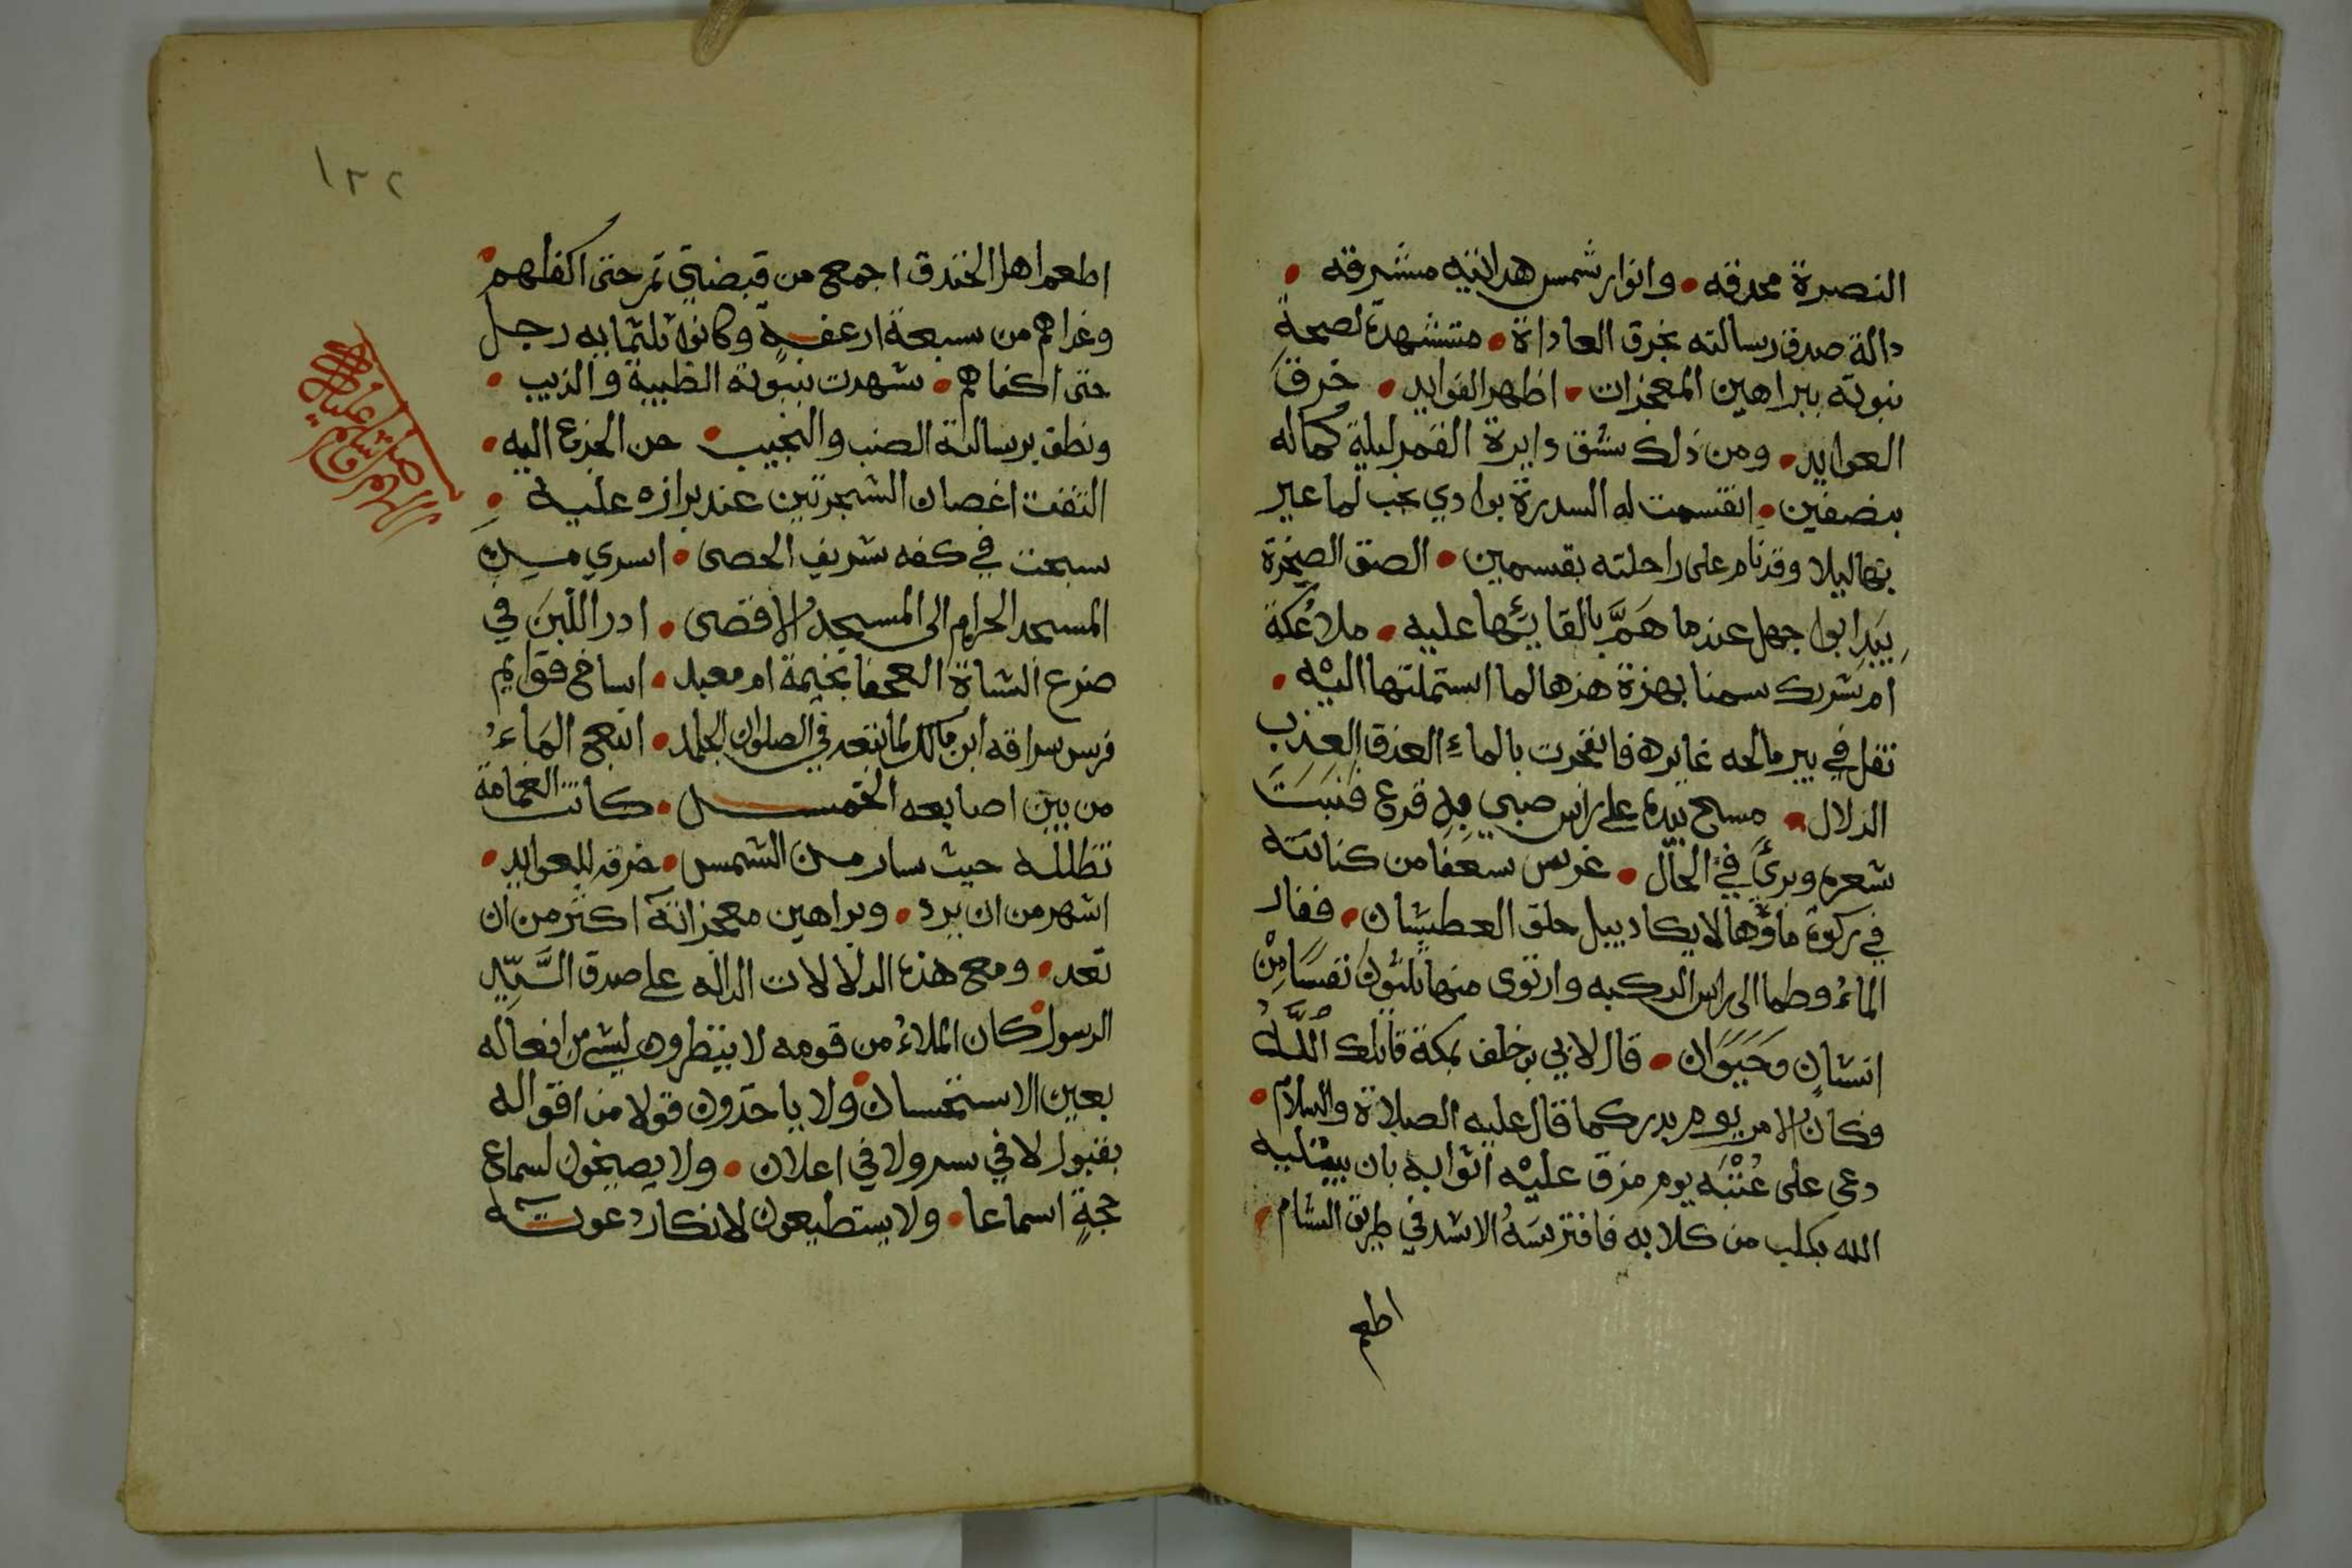 النصرة محدقه • وانوار شمس هدايته مشرقه •
دالة صدق رسالته بخرق العاداة • متشهدة لصحة
نبوته ببراهين المعجزات • اظهر الفوايد • خرق
العوايد • ومن ذلك شق دايرة القمر ليلة كماله
بنصفين • انقسمت له السدرة بوادي لما عبر
بها ليلا وقد نام على راحلته بقسمين • الصق الصخرة
بيد ابوا جهل عندما هَمَّ بالقائها عليه • ملا عُكة
ام شريك سمنا بهزة هزها لما استملتها اليه •
تفل في بير مالحه غايره فانفجرت بالماءِ الغدق العذب
الزلال • مسح بيده على راس صبي به قرع فنبَتَ
شعره وبرئ في الحال • غرس سعفا من كنانته
في ركوة ماؤها لا يكاد يبل حلق العطشان • ففار
الماءُ وطما الى راس الركبه وارتوى منها ثلثون نفسًا مِنْ
انسانٍ وحَيَوَان • قال لابي بن خلف بمكة قاتلك اللَّهُ
وكان الامر يوم بدر كما قال عليه الصلاة والسلام •
دعى على عُتْبَه يوم مزق عليْه اثوابه بان يبتليه
الله بكلب من كلابه فافترسَهُ الاسد في طريق الشام •
اطعم
١٣٢
اطعم اهل الخندق اجمع من قبضتي تمر حتى اكفلهم •
وغداهم من سبعة ارغفةٍ وكانوا ثلثمايه رجل
حتى اكفاهم • شهدت بنبوته الظبية والذيب •
ونطق برسالته الضب والنجيب • حن الجزع اليه •
التفت اغصان الشجرتين عند برازه عليه •
سبحت في كفه شريف الحصى • اسري من
المسجد الحرام الى المسجد الاقصى • ادر اللّبَن في
ضرع الشاة العجفا بخيمة ام معبد • اساخ قوايم
فرس سراقه ابن مالك لما تبعه في الصلوان الجلد • انبع الماءُ
من بين اصابعه الخمس • كانت الغمامة
تظلله حيث سار من الشمس • خرقه للعوايد •
اشهر من ان يرد • وبراهين معجزاته اكثر من ان
تعد • ومع هذه الدلالات الداله على صدق السَّيّدِ
الرسول • كان الملاءُ من قومه لا ينظرون لشي من افعاله
بعين الاستحسان • ولا ياخذون قولا من اقواله
بقبول لا في سر ولا في اعلان • ولا يصيخون لسماع
حجةٍ اسماعا • ولا يستطيعون لانكار دعوته
اللهم صل وسلم عليه